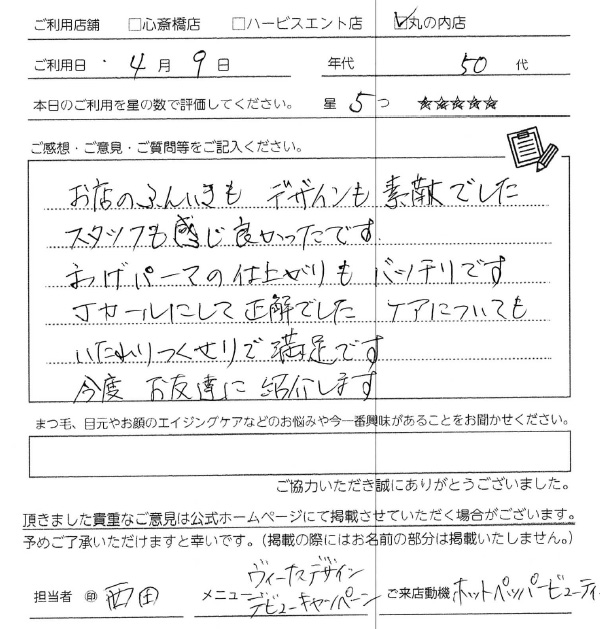 ご利用店舗 □心斎橋店 □ハービスエント店 ☑丸の内店
ご利用日・4月9日 年代 50代
本日のご利用を星の数で評価してください。 星5つ ★★★★★
ご感想・ご意見・ご質問等をご記入ください。
お店のふんいきも デザインも素敵でした
スタッフも感じ良かったです
まつげパーマの仕上がりもバッチリです
Jカールにして正解でした ケアについても
いたれりつくせりで満足です
今度 お友達に紹介します
まつ毛、目元やお顔のエイジングケアなどのお悩みや今一番興味があることをお聞かせください。
ご協力いただき誠にありがとうございました。
頂きました貴重なご意見は公式ホームページにて掲載させていただく場合がございます。
予めご了承いただけますと幸いです。(掲載の際にはお名前の部分は掲載いたしません。)
担当者 ㊞ 西田 メニュー ヴィーナスデザイン デビューキャンペーン ご来店動機 ホットペッパービューティ